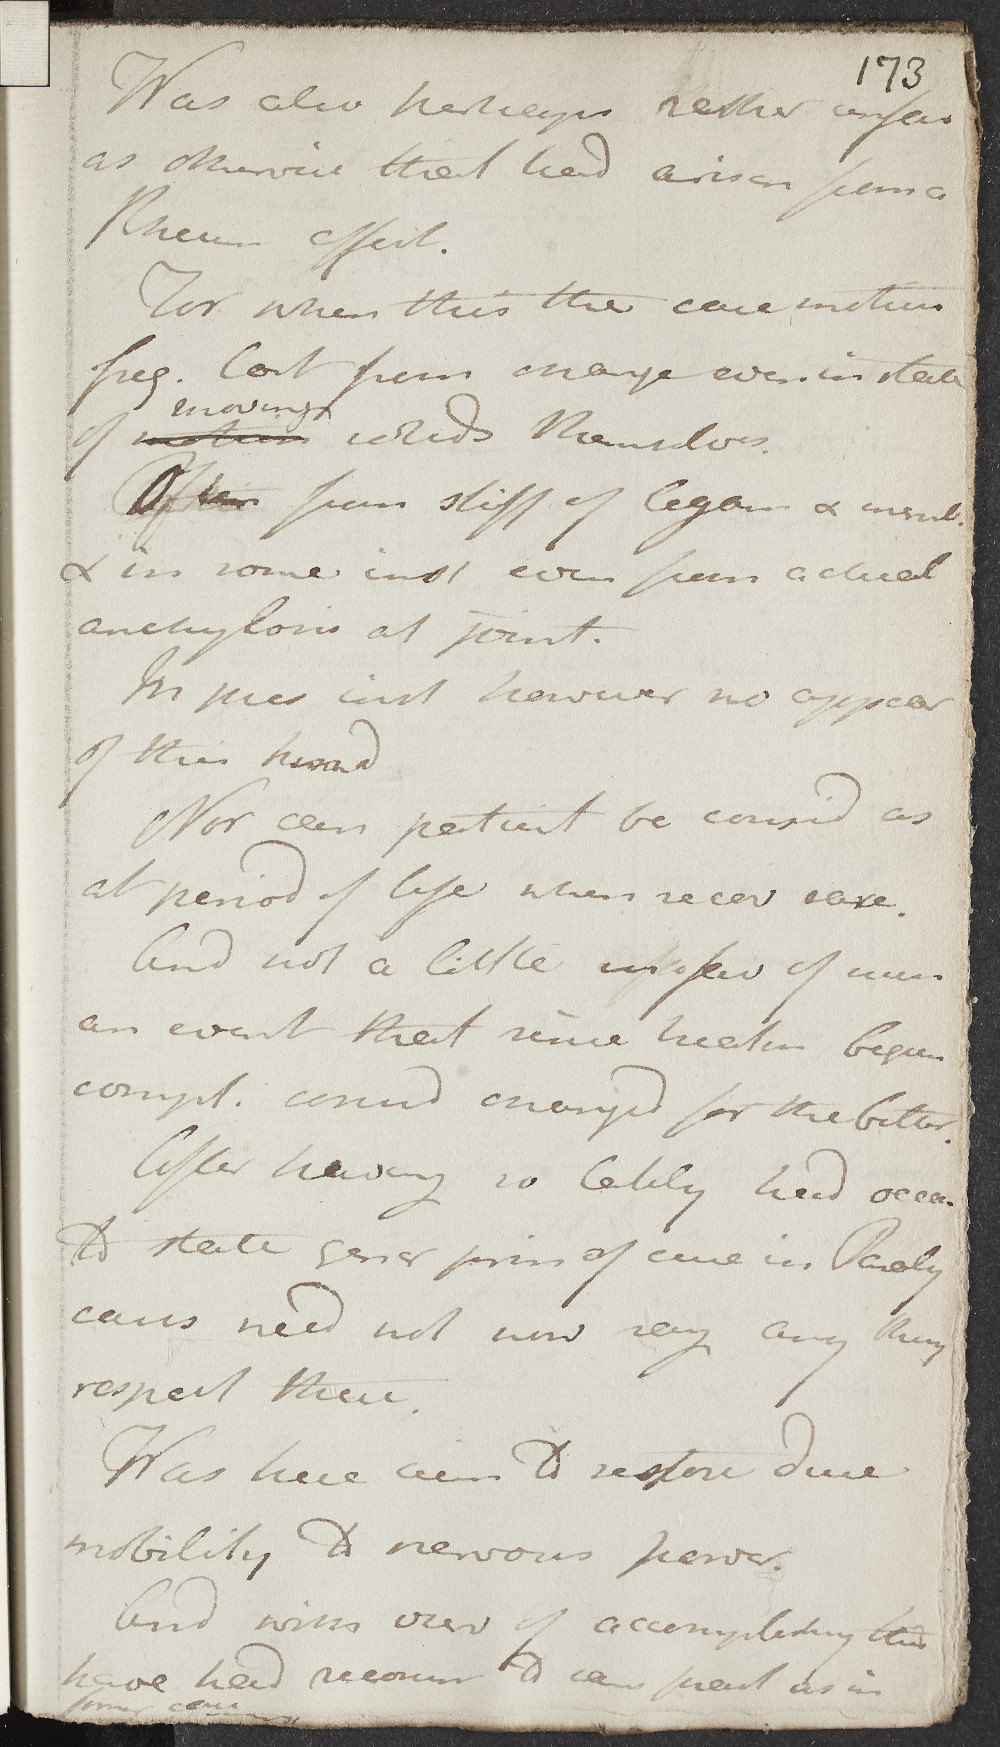 173
Was also perhaps rather unfav
as otherwise that had arisen from a
Rheum affect.
For when this the case motion
freq. lost from change even in state
of motion moving solids themselves.
Often from stiff of legam & memb.
& in some inst even from actual
anchylosis at joint.
In pres inst however no appear
of this kind
Nor can patient be consid as
at period of life when recov rare.
And not a little in fav of such
an event that since he has been
compl. consid changed for the better.
After having so lately had occa.
to state gener prin of cure in Paraly
cases need not now say any thing
respect these.
Was here aim to restore due
mobility to nervous power.
And with view of accomplishing this
have had recour to same pract as in
former cases